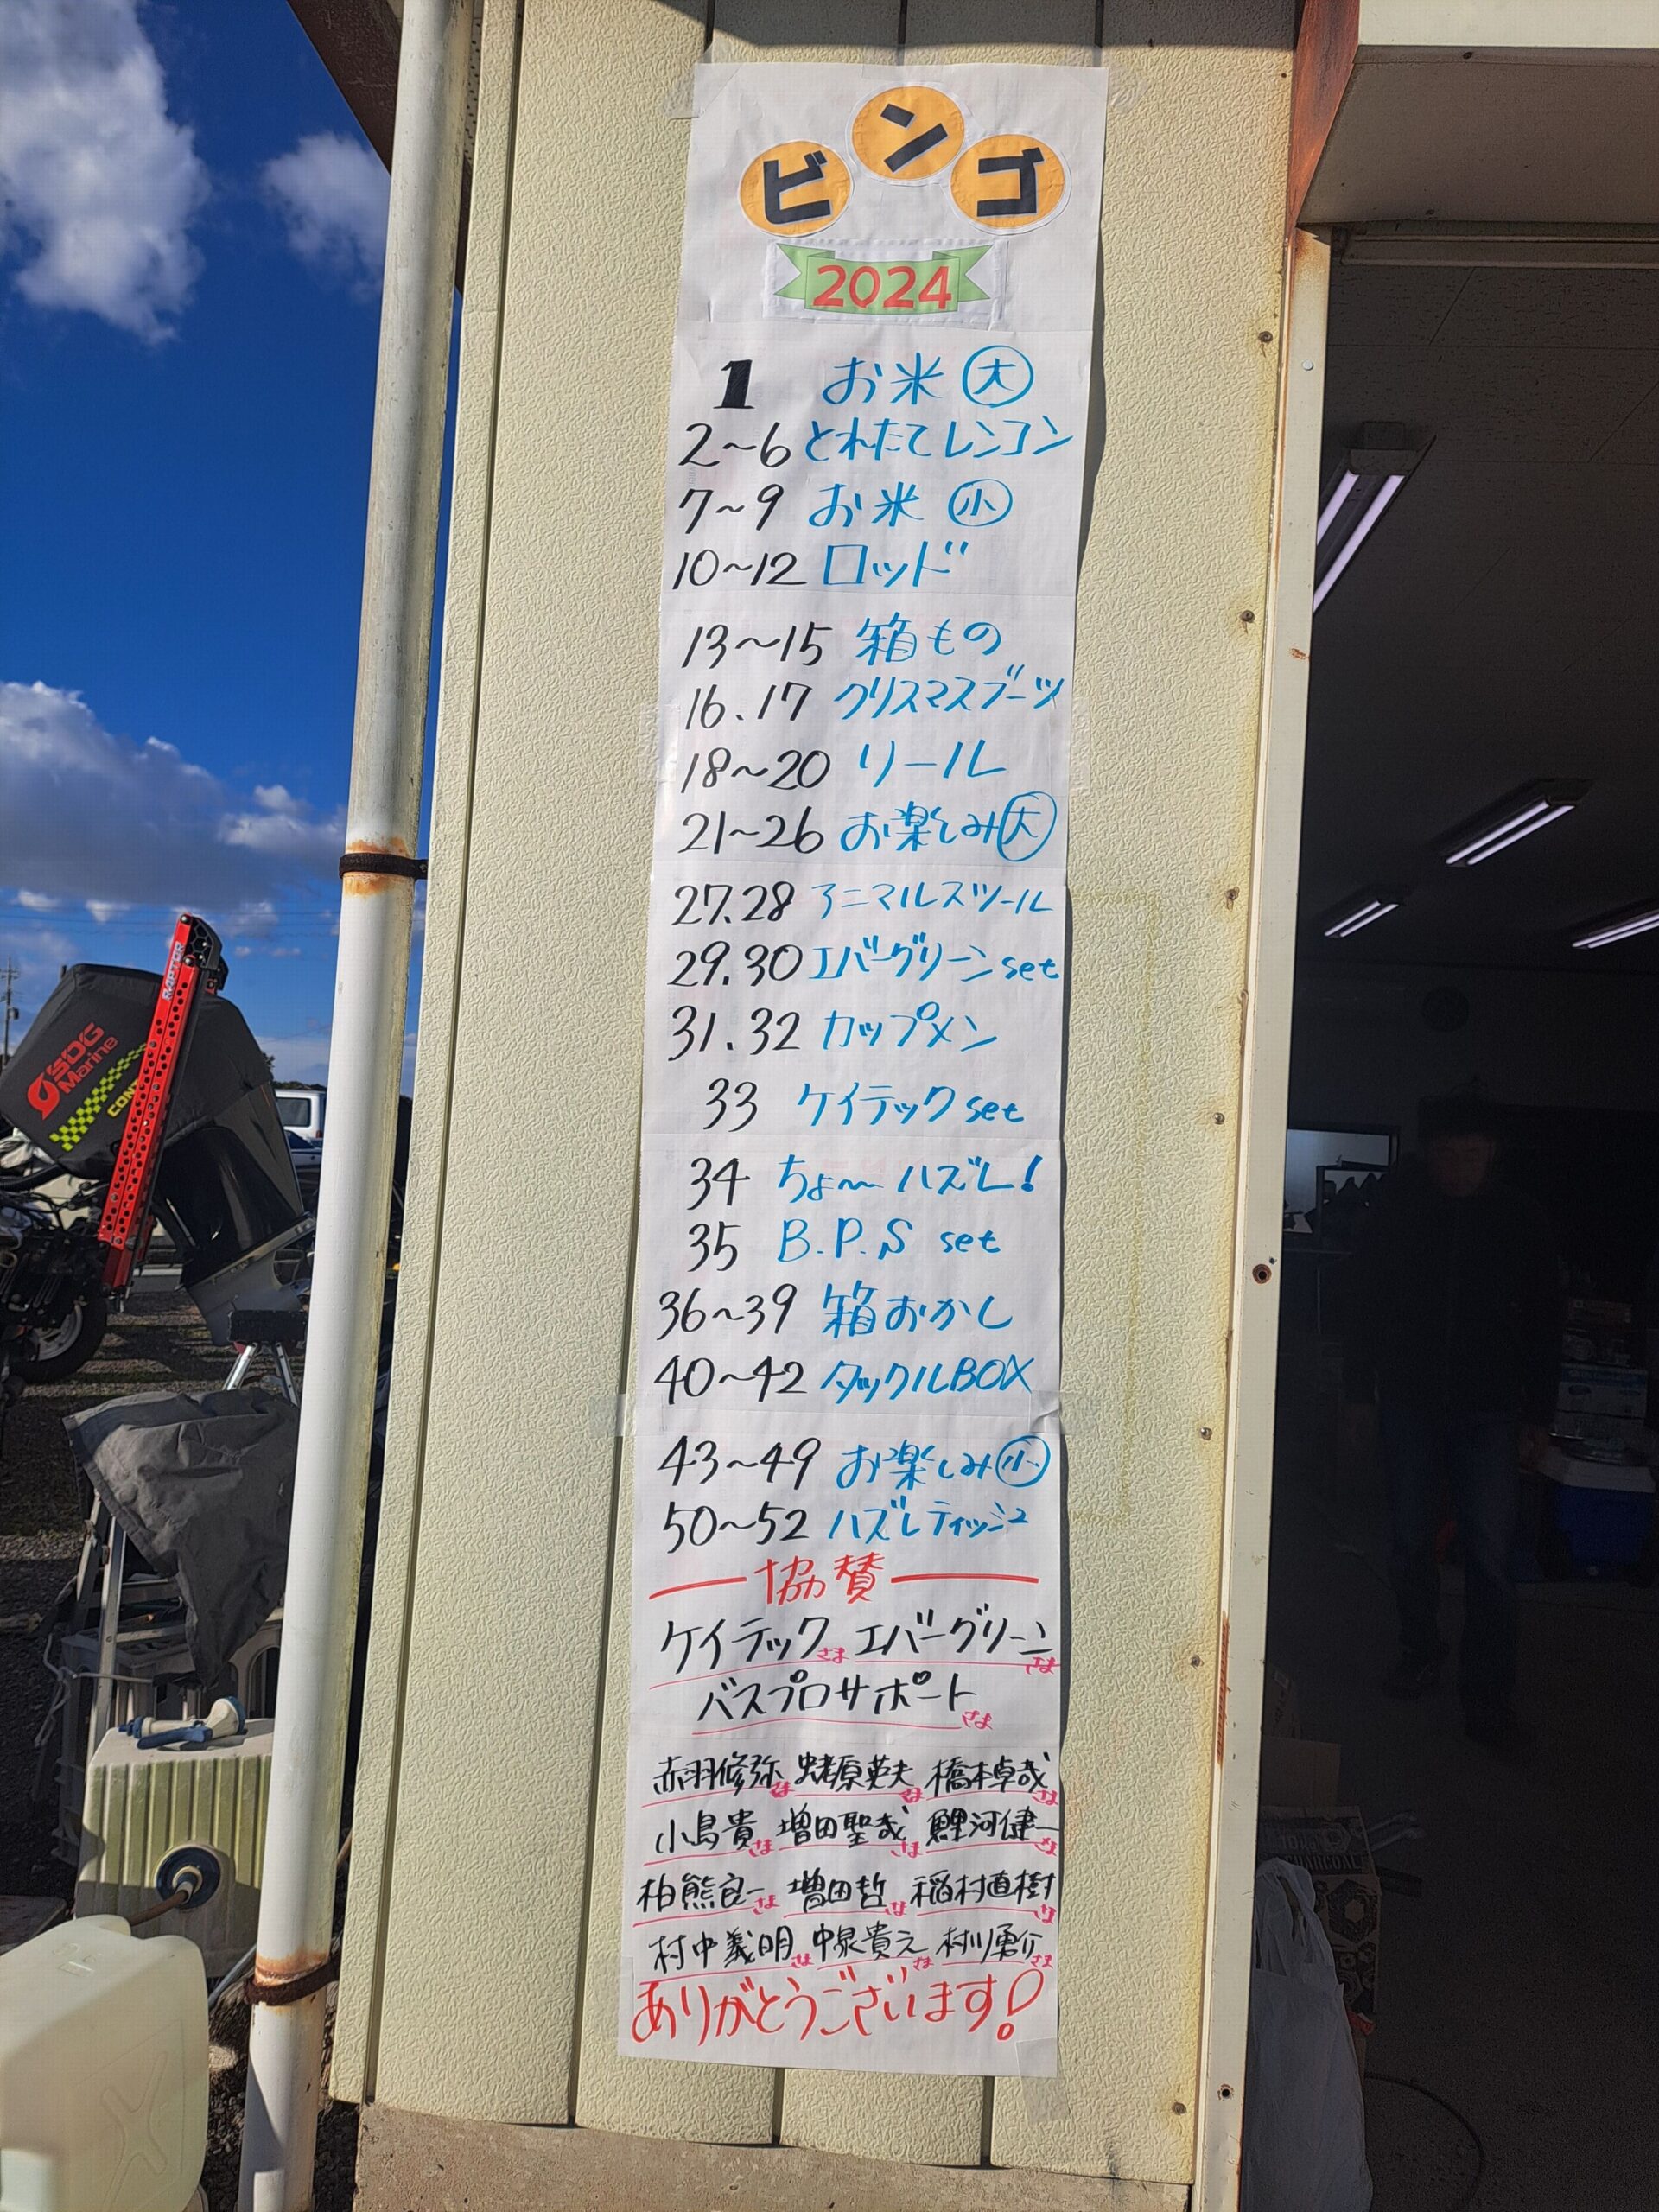 ビンゴ
2024
1 お米 大
2~6 とれたてレンコン
7~9 お米 小
10~12 ロッド
13~15 箱もの
16.17 クリスマスブーツ
18~20 リール
21~26 お楽しみ大
27.28 アニマルスツール
29.30 エバーグリーンset
31.32 カップメン
33 ケイテックset
34 ちょ〜ハズレ!
35 B.P.S set
36~39 箱おかし
40~42 タックルBOX
43~49 お楽しみ小
50~52 ハズレティッシュ
協賛
ケイテックさま エバーグリーンさま
バスプロサポートさま
赤羽修弥さま 蛯原英夫さま 橋本卓哉さま
小島貴さま 増田聖哉さま 鯉河健一さま
柏熊良一さま 増田哲さま 稲村直樹さま
村中義明さま 中泉貴元さま 村川勇介さま
ありがとうございます!
RAPTOR
SDG
Marine